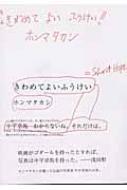 きわめて よい ふうけい!!
ホンマタカシ
= Short Hope
きわめてよいふうけい
ホンマタカシ
中平卓馬 わからないね、それだけは。
映画がゴダールを持ったとすれば、
写真は中平卓馬を持った。──浅田彰